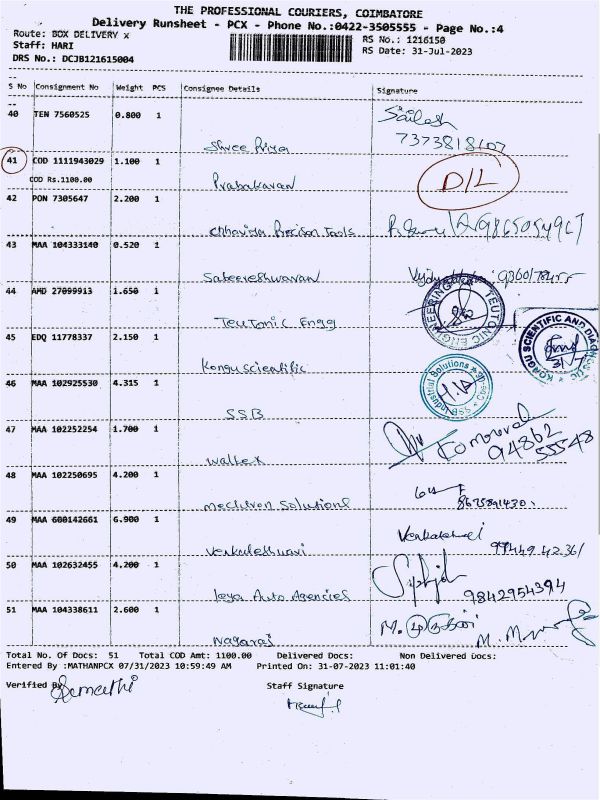 THE PROFESSIONAL COURIERS, COIMBATORE
Delivery Runsheet - PCX - Phone No.:0422-3505555 - Page No.:4
Route: BOX DELIVERY x
RS No.: 1216150
Staff: HARI
RS Date: 31-Jul-2023
DRS No.: DCJB121615004
S No Consignment No Weight PCS Consignee Details Signature
40 TEN 7560525 0.800 1 Shree Priya Sailesh
7373818107
41 COD 1111943029 1.100 1 Prabakaran D/L
COD Rs.1100.00
42 PON 7305647 2.200 1 Chhavira Precison Tools
43 MAA 104333140 0.520 1 Sabeereshwaran
44 AMD 27099913 1.650 1 Teutonic Engg
TEUTONIC ENGINEERING
45 EDQ 11778337 2.150 1 Kongu scientific
KONGU SCIENTIFIC AND
46 MAA 102925530 4.315 1 SSB
Industrial Solutions
47 MAA 102252254 1.700 1 Wallex
94862
55548
48 MAA 102250695 4.200 1 Mechtron Solutions
49 MAA 600142661 6.900 1 Venkateshwari
99449 42361
50 MAA 102632455 4.200 1 Jeya Auto Agencies
9842954394
51 MAA 104338611 2.600 1 Nagaraj
Total No. Of Docs: 51 Total COD Amt: 1100.00 Delivered Docs: Non Delivered Docs:
Entered By :MATHANPCX 07/31/2023 10:59:49 AM Printed On: 31-07-2023 11:01:40
Verified By
Staff Signature